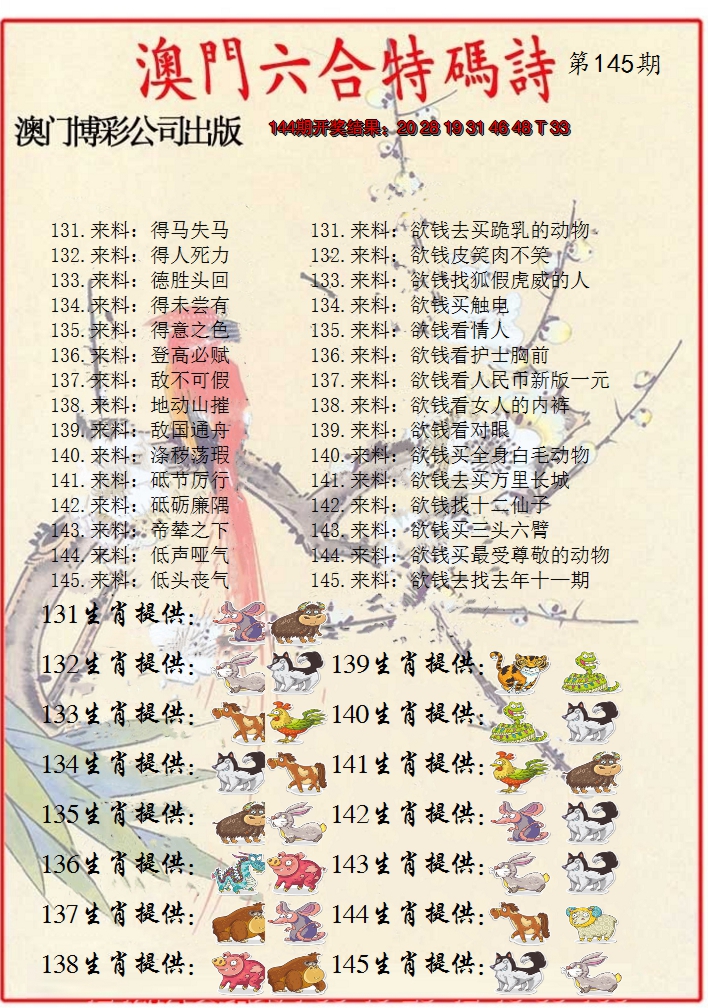 澳門六合特碼詩 第145期
澳门博彩公司出版 144期开奖结果：20 28 19 31 46 48 T 33
131.来料：得马失马 131.来料：欲钱去买跪乳的动物
132.来料：得人死力 132.来料：欲钱皮笑肉不笑
133.来料：德胜头回 133.来料：欲钱找狐假虎威的人
134.来料：得未尝有 134.来料：欲钱买触电
135.来料：得意之色 135.来料：欲钱看情人
136.来料：登高必赋 136.来料：欲钱看护士胸前
137.来料：敌不可假 137.来料：欲钱看人民币新版一元
138.来料：地动山摧 138.来料：欲钱看女人的内裤
139.来料：敌国通舟 139.来料：欲钱看对眼
140.来料：涤秽荡瑕 140.来料：欲钱买全身白毛动物
141.来料：砥节厉行 141.来料：欲钱去买万里长城
142.来料：砥砺廉隅 142.来料：欲钱找十二仙子
143.来料：帝辇之下 143.来料：欲钱买三头六臂
144.来料：低声哑气 144.来料：欲钱买最受尊敬的动物
145.来料：低头丧气 145.来料：欲钱去找去年十一期
131生肖提供：
132生肖提供： 139生肖提供：
133生肖提供： 140生肖提供：
134生肖提供： 141生肖提供：
135生肖提供： 142生肖提供：
136生肖提供： 143生肖提供：
137生肖提供： 144生肖提供：
138生肖提供： 145生肖提供：